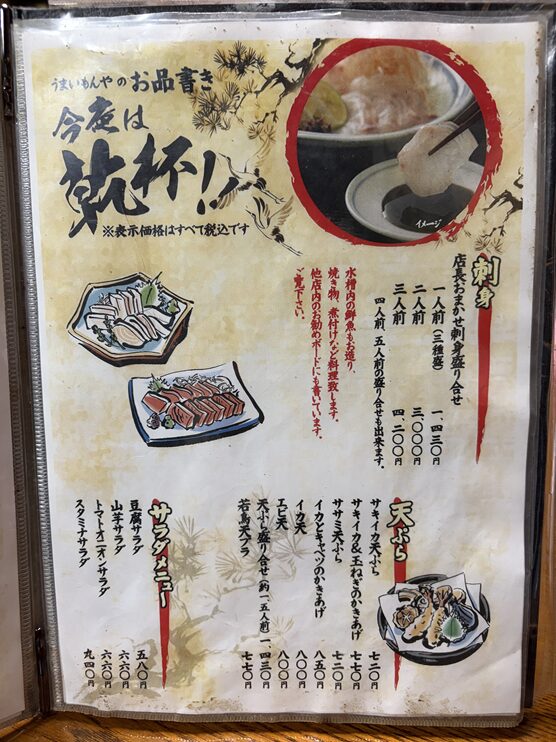 うまいもんやのお品書き
今夜は
乾杯!!
※表示価格はすべて税込です
イメージ
刺身
店長おまかせ刺身盛り合せ
一人前(三種盛) 一、四三〇円
二人前 三、〇〇〇円
三人前 四、二〇〇円
四人前、五人前の盛り合せも出来ます。
水槽内の鮮魚もお造り、
焼き物、煮付けなど料理致します。
他店内のお勧めボードにも書いています。
ご覧下さい。
天ぷら
サキイカ天ぷら 七二〇円
サキイカ&玉ねぎのかきあげ 七七〇円
ササミ天ぷら 七二〇円
イカとキャベツのかきあげ 八五〇円
イカ天 八〇〇円
エビ天 八〇〇円
天ぷら盛り合せ(約一五人前) 一、四三〇円
若鳥天プラ 七七〇円
サラダメニュー
豆腐サラダ 五八〇円
山芋サラダ 六六〇円
トマトオニオンサラダ 六六〇円
スタミナサラダ 九四〇円